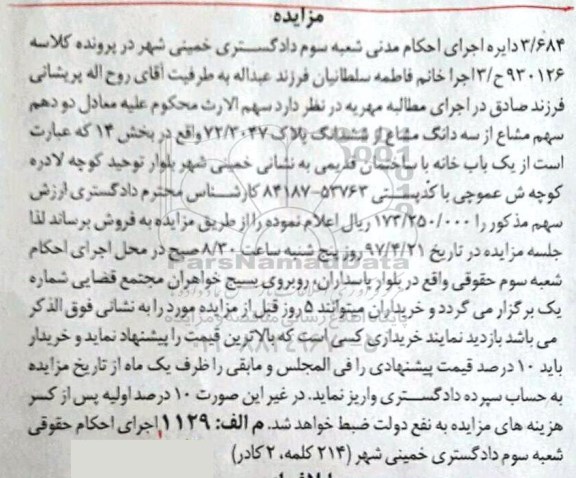 مزایده
۳/۶۸۴ دایره اجرای احکام مدنی شعبه سوم دادگستری خمینی شهر در پرونده کلاسه
۹۳۰۱۲۶ ح/۳ اجرا خانم فاطمه سلطانیان فرزند عبداله به طرفیت آقای روح اله پریشانی
فرزند صادق در اجرای مطالبه مهریه در نظر دارد سهم الارث محکوم علیه معادل دو دهم
سهم مشاع از سه دانگ مشاع از ششدانگ پلاک ۷۲/۳۰۴۷ واقع در بخش ۱۴ که عبارت
است از یک باب خانه با ساختمان قدیمی به نشانی خمینی شهر بلوار توحید کوچه لادره
کوچه ش عموچی با کدپستی ۵۳۷۶۳-۸۴۱۸۷ کارشناس محترم دادگستری ارزش
سهم مذکور را ۱۷۳/۲۵۰/۰۰۰ ریال اعلام نموده را از طریق مزایده به فروش برساند لذا
جلسه مزایده در تاریخ ۹۷/۴/۲۱ روز پنج شنبه ساعت ۸/۳۰ صبح در محل اجرای احکام
شعبه سوم حقوقی واقع در بلوار پاسداران، روبروی بسیج خواهران مجتمع قضایی شماره
یک برگزار می گردد و خریداران میتوانند ۵ روز قبل از مزایده مورد را به نشانی فوق الذکر
می باشد بازدید نمایند خریداری کسی است که بالاترین قیمت را پیشنهاد نماید و خریدار
باید ۱۰ درصد قیمت پیشنهادی را فی المجلس و مابقی را ظرف یک ماه از تاریخ مزایده
به حساب سپرده دادگستری واریز نماید. در غیر این صورت ۱۰ درصد اولیه پس از کسر
هزینه های مزایده به نفع دولت ضبط خواهد شد. م الف: ۱۱۲۹ اجرای احکام حقوقی
شعبه سوم دادگستری خمینی شهر (۲۱۴ کلمه، ۲ کادر)
ParsNamadData